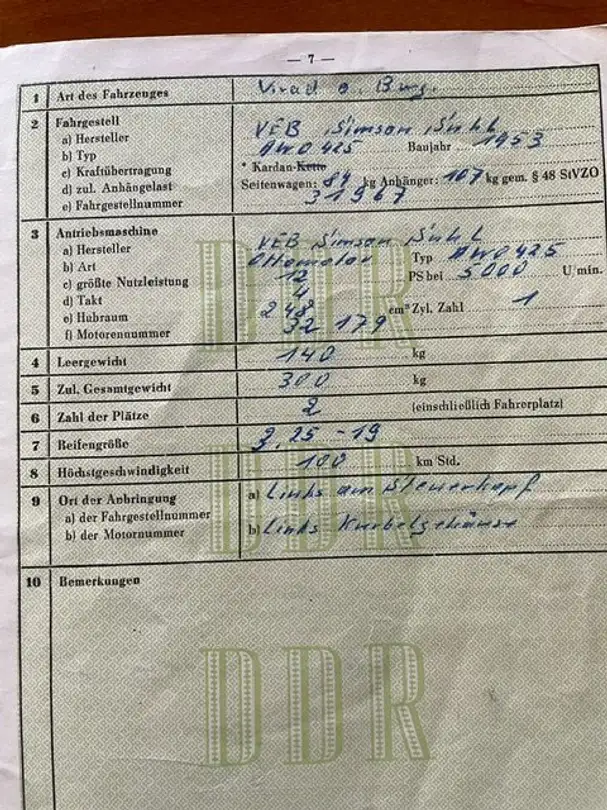 — 7 —
1 Art des Fahrzeuges Krad o. Bwg.
2 Fahrgestell
a) Hersteller VEB Simson Suhl
b) Typ AWO 425 Baujahr 1953
c) Kraftübertragung * Kardan-Kette
d) zul. Anhängelast Seitenwagen: 84 kg Anhänger: 107 kg gem. § 48 StVZO
e) Fahrgestellnummer 31967
3 Antriebsmaschine
a) Hersteller VEB Simson Suhl
b) Art Ottomotor Typ AWO 425
c) größte Nutzleistung 12 PS bei 5000 U/min.
d) Takt 4
e) Hubraum 248 cm³ Zyl. Zahl 1
f) Motorennummer 32 179
4 Leergewicht 140 kg
5 Zul. Gesamtgewicht 300 kg
6 Zahl der Plätze 2 (einschließlich Fahrerplatz)
7 Reifengröße 3,25 - 19
8 Höchstgeschwindigkeit 100 km/Std.
9 Ort der Anbringung
a) der Fahrgestellnummer a) Links am Steuerkopf
b) der Motornummer b) Links Kurbelgehäuse
10 Bemerkungen
DDR
DDR
DDR